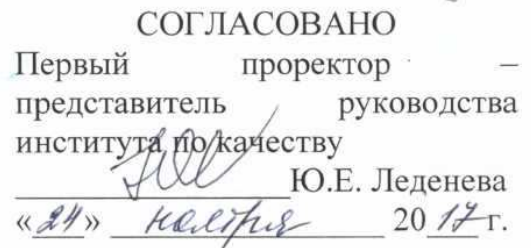 СОГЛАСОВАНО
Первый проректор –
представитель руководства
института по качеству
Ю.Е. Леденева
«24» ноября 2017 г.